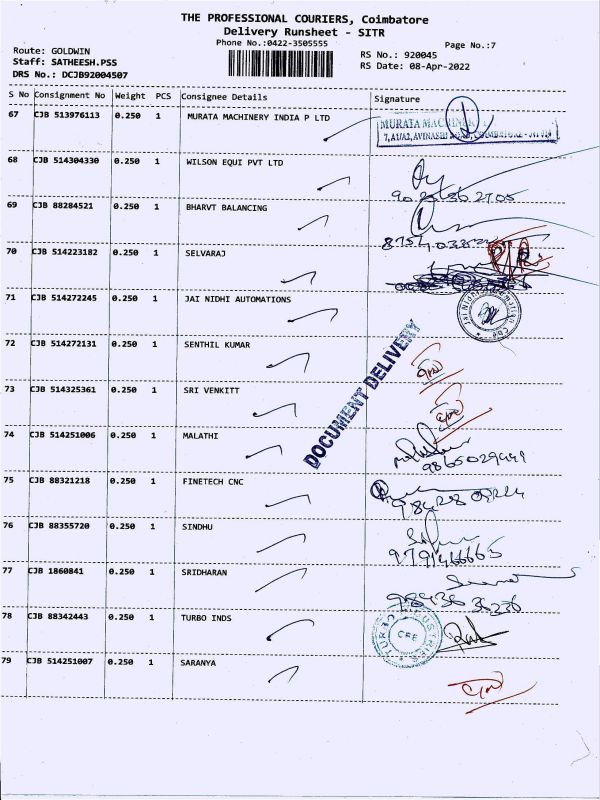 THE PROFESSIONAL COURIERS, Coimbatore
Delivery Runsheet - SITR
Phone No.:0422-3505555
Page No.:7
Route: GOLDWIN
RS No.: 920045
Staff: SATHEESH.PSS
RS Date: 08-Apr-2022
DRS No.: DCJB92004507
S No Consignment No Weight PCS Consignee Details Signature
67 CJB 513976113 0.250 1 MURATA MACHINERY INDIA P LTD
MURATA MACHINERY
68 CJB 514304330 0.250 1 WILSON EQUI PVT LTD
69 CJB 88284521 0.250 1 BHARVT BALANCING
70 CJB 514223182 0.250 1 SELVARAJ
71 CJB 514272245 0.250 1 JAI NIDHI AUTOMATIONS
Jai Nidhi Automation CBE
72 CJB 514272131 0.250 1 SENTHIL KUMAR
DOCUMENT DELIVERY
73 CJB 514325361 0.250 1 SRI VENKITT
74 CJB 514251006 0.250 1 MALATHI
75 CJB 88321218 0.250 1 FINETECH CNC
76 CJB 88355720 0.250 1 SINDHU
9791466665
77 CJB 1860841 0.250 1 SRIDHARAN
98436 36236
78 CJB 88342443 0.250 1 TURBO INDS
TURBO INDUSTRIES CBE
79 CJB 514251007 0.250 1 SARANYA